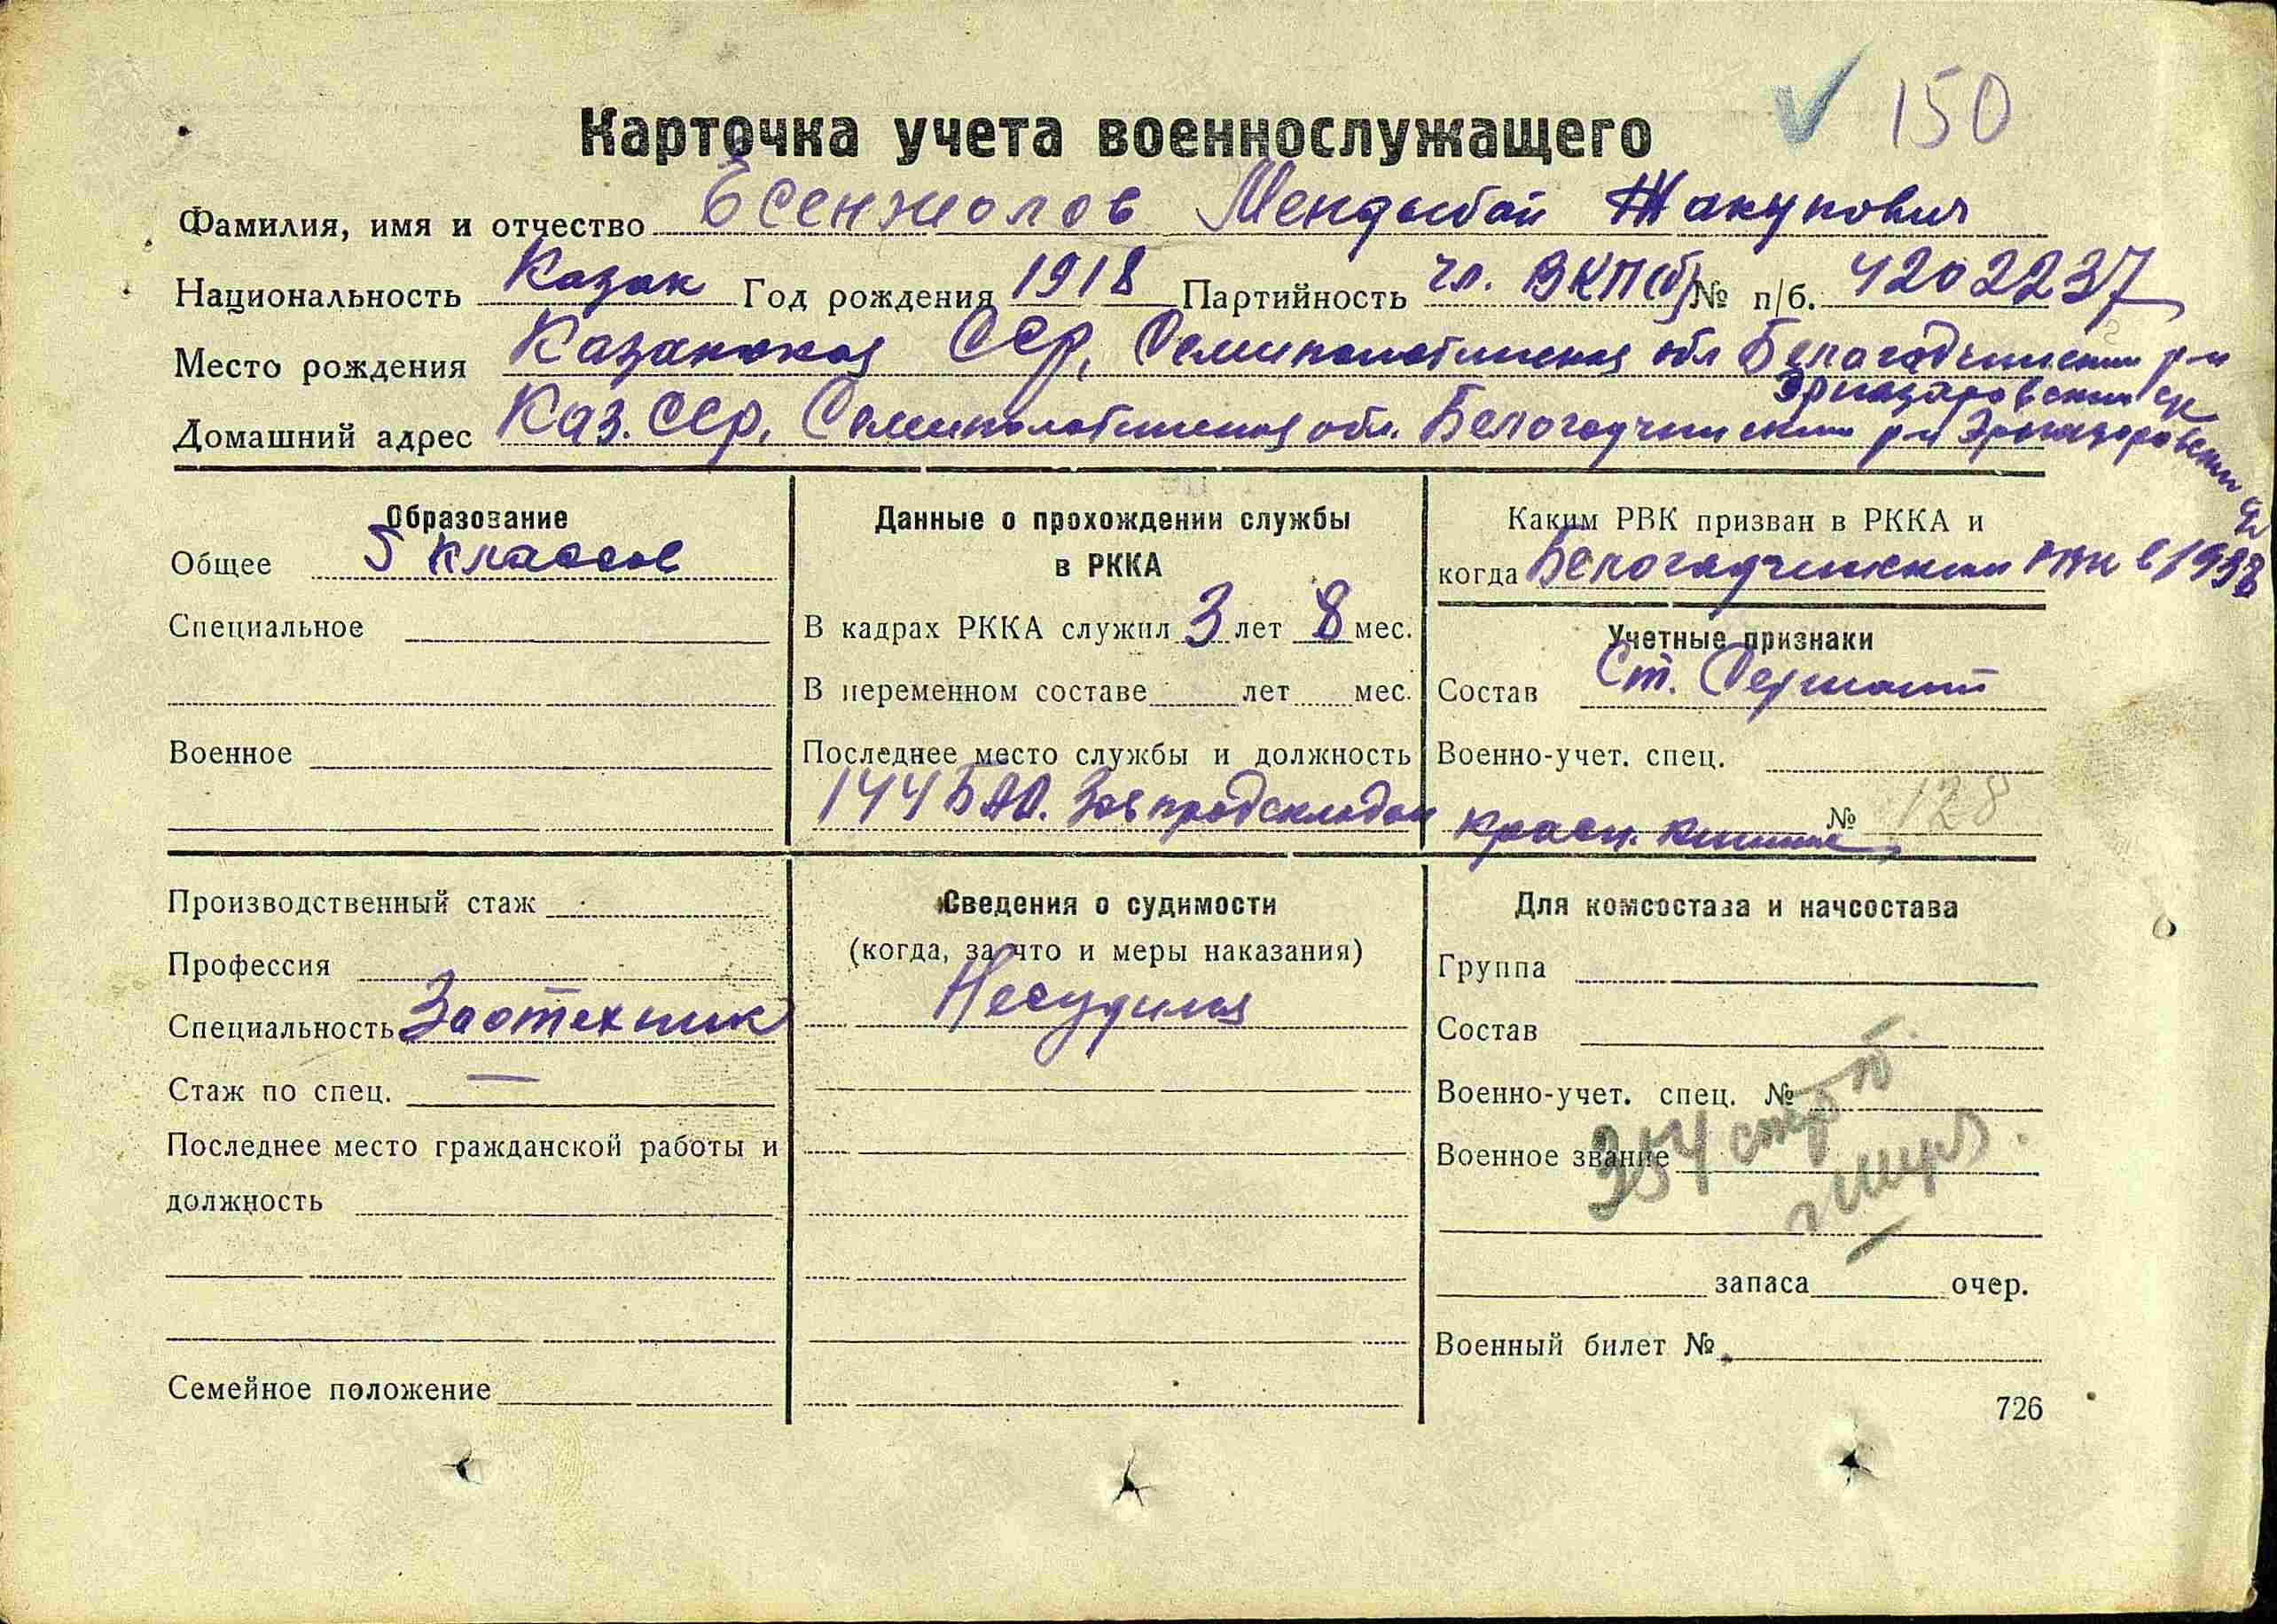 150
Карточка учета военнослужащего
Фамилия, имя и отчество Есенжолов Мендыбай Жакупович
Национальность Казак Год рождения 1918 Партийность чл. ВКП(б) № п/б. 4202237
Место рождения Казакская ССР, Семипалатинская обл Белогачинский р-н
Домашний адрес Каз. ССР, Семипалатинская обл. Белогачинский р-н
Образование
Общее 5 классов
Специальное
Военное
Данные о прохождении службы
в РККА
В кадрах РККА служил 3 лет 8 мес.
В переменном составе лет мес.
Последнее место службы и должность
144 БАО. Зав продскладом
Каким РВК призван в РККА и
когда Белогачинским в 1938
Учетные признаки
Состав Ст. Сержант
Военно-учет. спец.
красн. № 128
Производственный стаж
Профессия
Специальность Заотехник
Стаж по спец. —
Последнее место гражданской работы и
должность
Семейное положение
Сведения о судимости
(когда, за что и меры наказания)
Несудился
Для комсостава и начсостава
Группа
Состав
Военно-учет. спец. №
Военное звание
354
запаса очер.
Военный билет №
726